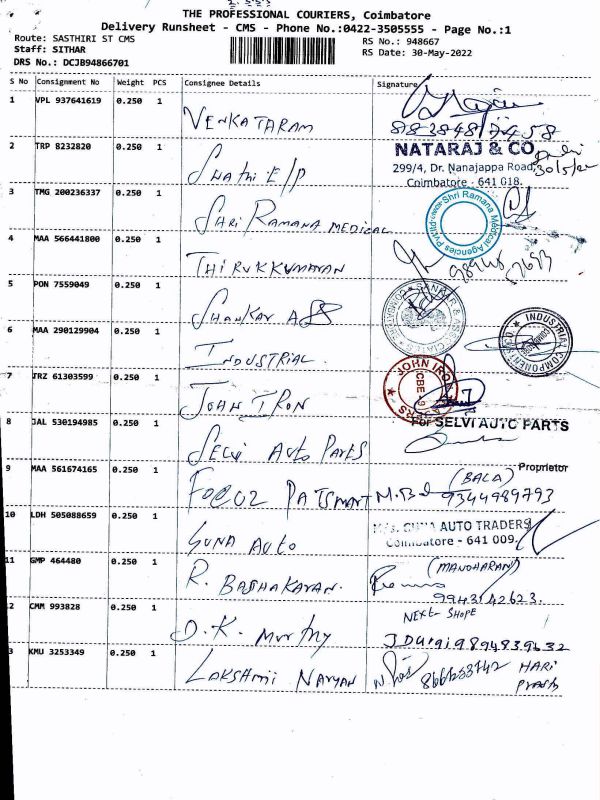 THE PROFESSIONAL COURIERS, Coimbatore
Delivery Runsheet - CMS - Phone No.:0422-3505555 - Page No.:1
Route: SASTHIRI ST CMS
RS No.: 948667
Staff: SITHAR
RS Date: 30-May-2022
DRS No.: DCJB94866701
S No Consignment No Weight PCS Consignee Details Signature
1 VPL 937641619 0.250 1 VENKATARAM
2 TRP 8232820 0.250 1 Swathi E/P
NATARAJ & CO
299/4, Dr. Nanajappa Road,
Coimbatore - 641 018.
30/5/22
3 TMG 200236337 0.250 1 SHRI RAMANA MEDICAL
Shri Ramana Medical Agencies
4 MAA 566441800 0.250 1 THIRUKKUMARAN
5 PON 7559049 0.250 1 SHANKAR ASS
6 MAA 290129904 0.250 1 INDUSTRIAL
INDUSTRIAL COMPONENTS CO.
7 TRZ 61303599 0.250 1 JOHN IRON
JOHN IRO
8 JAL 530194985 0.250 1 SELVI AUTO PARTS
For SELVI AUTO PARTS
Proprietor
9 MAA 561674165 0.250 1
(BALA)
9344989793
10 LDH 505088659 0.250 1 GUNA AUTO
M/s. GUNA AUTO TRADERS
Coimbatore - 641 009.
11 GMP 464480 0.250 1 R. BASHAKARAN.
(MANOHARAN)
9943142623.
NEXT SHOPE
2 CMM 993828 0.250 1 D.K. Murthy
9894839632
3 KMU 3253349 0.250 1 LAKSHMI NARYAN
HARI